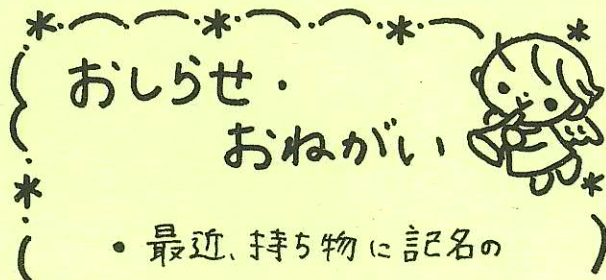 おしらせ・
おねがい
・最近、持ち物に記名の